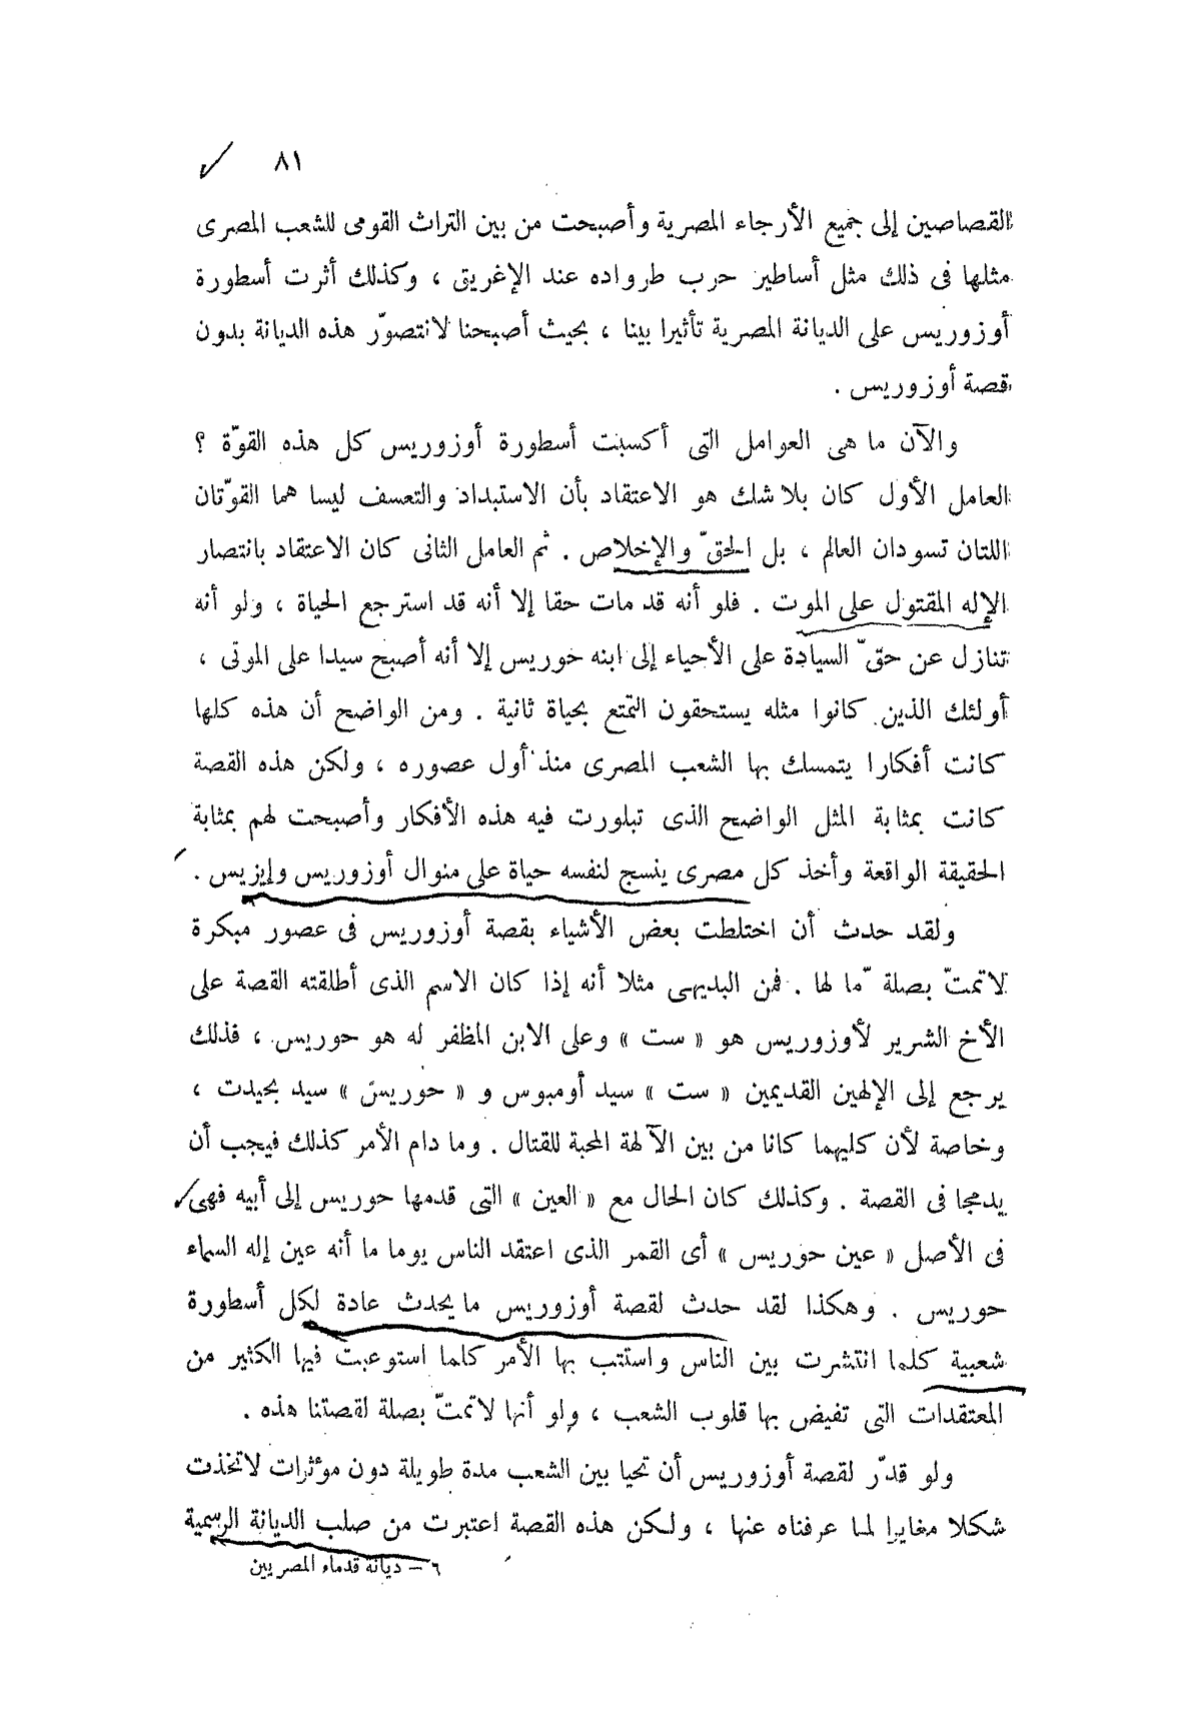 ٨١
القصاصين إلى جميع الأرجاء المصرية وأصبحت من بين التراث القومى للشعب المصرى
مثلها فى ذلك مثل أساطير حرب طرواده عند الإغريق ، وكذلك أثرت أسطورة
أوزوريس على الديانة المصرية تأثيرا بينا ، بحيث أصبحنا لانتصوّر هذه الديانة بدون
قصة أوزوريس .
والآن ما هى العوامل التى أكسبت أسطورة أوزوريس كل هذه القوّة ؟
العامل الأول كان بلا شك هو الاعتقاد بأن الاستبداد والتعسف ليسا هما القوّتان
اللتان تسودان العالم ، بل الحقّ والإخلاص . ثم العامل الثانى كان الاعتقاد بانتصار
الإله المقتول على الموت . فلو أنه قد مات حقا إلا أنه قد استرجع الحياة ، ولو أنه
تنازل عن حقّ السيادة على الأحياء إلى ابنه حوريس إلا أنه أصبح سيدا على الموتى ،
أولئك الذين كانوا مثله يستحقون التمتع بحياة ثانية . ومن الواضح أن هذه كلها
كانت أفكارا يتمسك بها الشعب المصرى منذ أول عصوره ، ولكن هذه القصة
كانت بمثابة المثل الواضح الذى تبلورت فيه هذه الأفكار وأصبحت لهم بمثابة
الحقيقة الواقعة وأخذ كل مصرى ينسج لنفسه حياة على منوال أوزوريس وإيزيس .
ولقد حدث أن اختلطت بعض الأشياء بقصة أوزوريس فى عصور مبكرة
لاتمتّ بصلة مّا لها . فمن البديهى مثلا أنه إذا كان الاسم الذى أطلقته القصة على
الأخ الشرير لأوزوريس هو « ست » وعلى الابن المظفر له هو حوريس ، فذلك
يرجع إلى الإلهين القديمين « ست » سيد أومبوس و « حوريس » سيد بحيدت ،
وخاصة لأن كليهما كانا من بين الآلهة المحبة للقتال . وما دام الأمر كذلك فيجب أن
يدمجا فى القصة . وكذلك كان الحال مع « العين » التى قدمها حوريس إلى أبيه فهى
فى الأصل « عين حوريس » أى القمر الذى اعتقد الناس يوما ما أنه عين إله السماء
حوريس . وهكذا لقد حدث لقصة أوزوريس ما يحدث عادة لكل أسطورة
شعبية كلما انتشرت بين الناس واستتب بها الأمر كلما استوعبت فيها الكثير من
المعتقدات التى تفيض بها قلوب الشعب ، ولو أنها لاتمتّ بصلة لقصتنا هذه .
ولو قدّر لقصة أوزوريس أن تحيا بين الشعب مدة طويلة دون مؤثرات لاتخذت
شكلا مغايرا لما عرفناه عنها ، ولكن هذه القصة اعتبرت من صلب الديانة الرسمية
٦ – ديانة قدماء المصريين